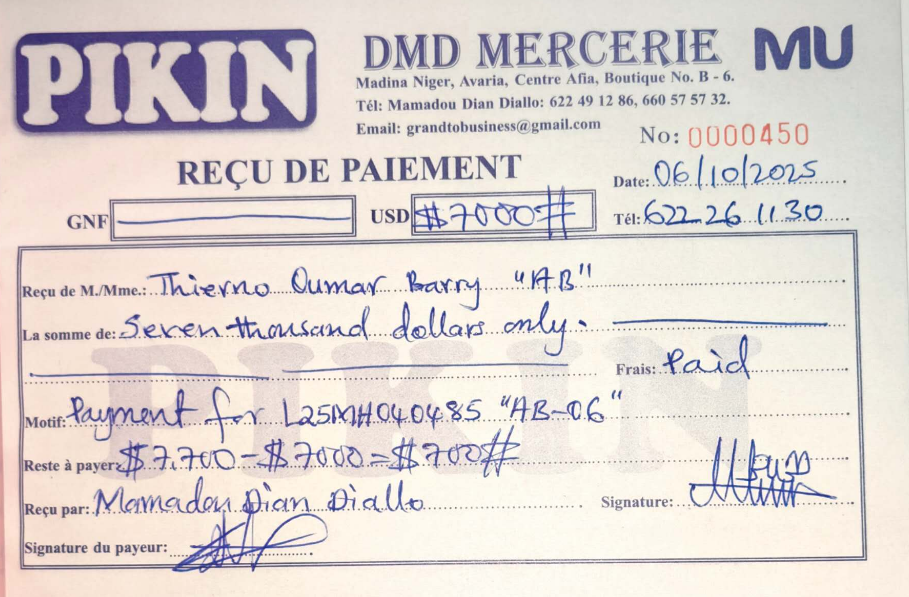 PIKIN
DMD MERCERIE
MU
Madina Niger, Avaria, Centre Afia, Boutique No. B - 6.
Tél: Mamadou Dian Diallo: 622 49 12 86, 660 57 57 32.
Email: grandtobusiness@gmail.com
No: 0000450
REÇU DE PAIEMENT
Date: 06/10/2025
GNF
USD $7000#
Tél: 622 26 11 30
Reçu de M./Mme.: Thierno Oumar Barry "AB"
La somme de: Seven thousand dollars only.
Frais: Paid
PIKIN
Motif: Payment for L25MH040485 "AB-06"
Reste à payer: $7.700 - $7000 = $700#
Reçu par: Mamadou Dian Diallo
Signature:
Signature du payeur: